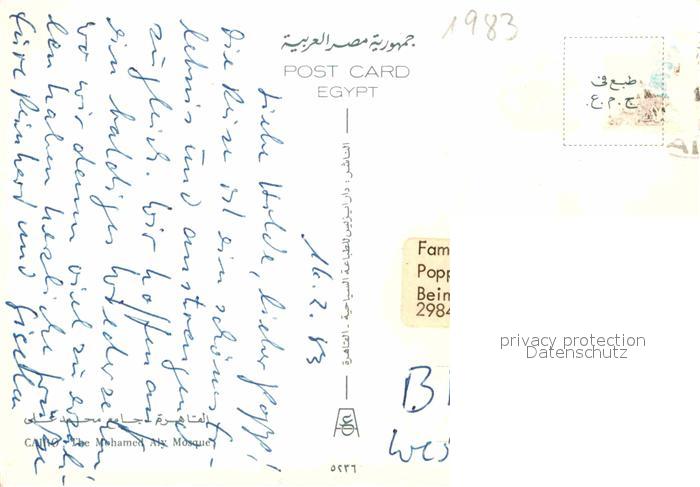 1983
جمهورية مصر العربية
POST CARD
EGYPT
طبع فى
ج.م.ع.
16.2.83
Liebe Hilde, lieber Popp!
Die Reise ist ein schönes Er-
lebnis und anstrengend
zugleich. Wir hoffen auf
ein baldiges Wiedersehen
wo wir dann viel zu erzäh-
len haben herzliche Grüsse
Eure Reinhard und Giselha
الناشر : دار الرئيس للطباعة السياحية - القاهرة
Fam
Popp
Bein
2984
B
wes
privacy protection
Datenschutz
القاهرة - جامع محمد على
CAIRO - The Mohamed Aly Mosque
٥٢٣٦